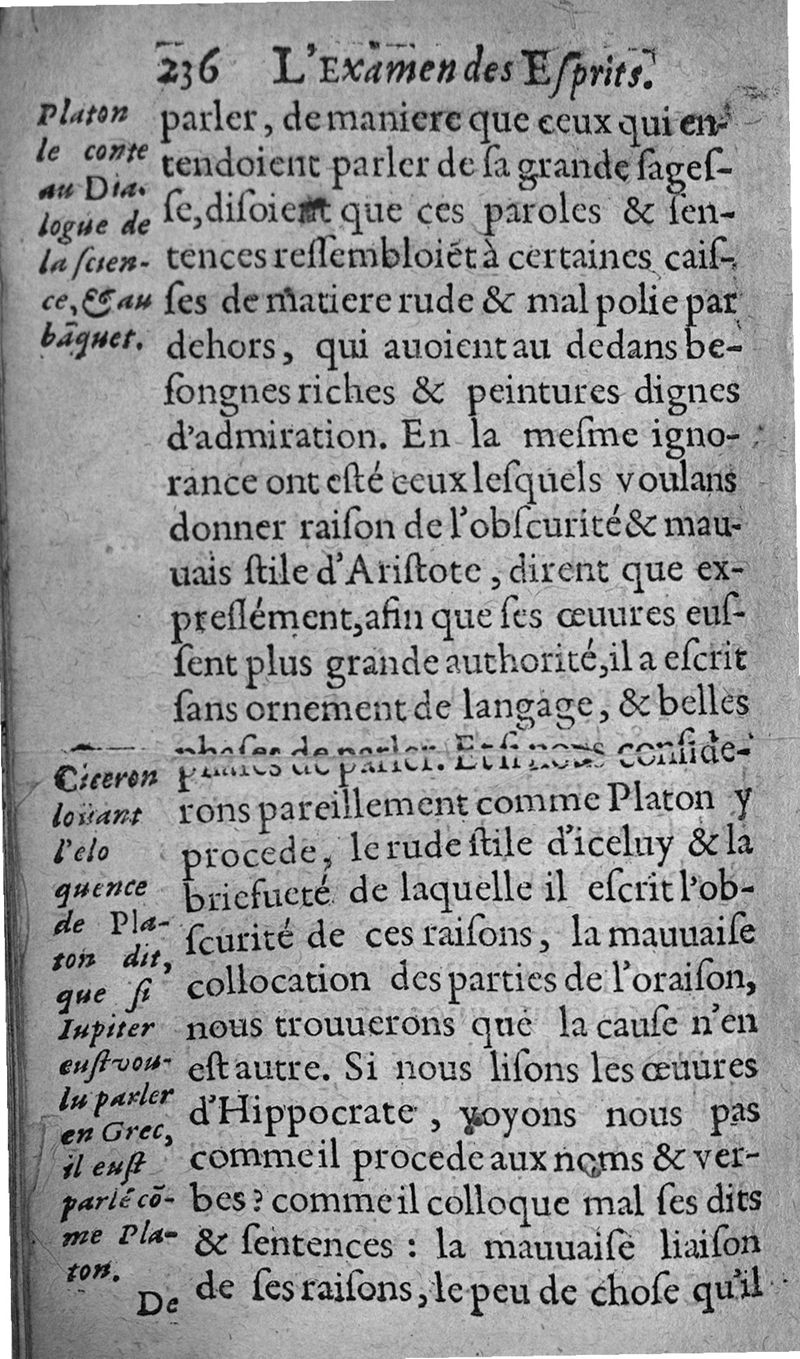 236 L'Examen des Esprits.
Platon
le conte
au Dia-
logue de
la scien-
ce, & au
bāquet.
parler, de maniere que ceux qui en-
tendoient parler de sa grande sages-
se, disoient que ces paroles & sen-
tences ressembloiēt à certaines cais-
ses de matiere rude & mal polie par
dehors, qui auoient au dedans be-
songnes riches & peintures dignes
d'admiration. En la mesme igno-
rance ont esté ceux lesquels voulans
donner raison de l'obscurité & mau-
uais stile d'Aristote, dirent que ex-
pressément, afin que ses œuures eus-
sent plus grande authorité, il a escrit
sans ornement de langage, & belles
phases de parler. Et si nous conside-
rons pareillement comme Platon y
procede, le rude stile d'iceluy & la
briefueté de laquelle il escrit l'ob-
scurité de ces raisons, la mauuaise
collocation des parties de l'oraison,
nous trouuerons que la cause n'en
est autre. Si nous lisons les œuures
d'Hippocrate, voyons nous pas
comme il procede aux noms & ver-
bes? comme il colloque mal ses dits
& sentences : la mauuaise liaison
de ses raisons, le peu de chose qu'il
Ciceron
loüant
l'elo
quence
de Pla-
ton dit,
que si
Iupiter
eust vou-
lu parler
en Grec,
il eust
parlé cō-
me Pla-
ton.
De